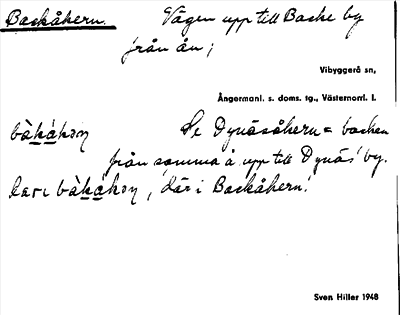 Backåkern. Vägen upp till Backe by
från ån;
Vibyggerå sn,
Ångermanl. s. doms. tg., Västernorrl. l.
bàkåkəṇ Se Dynäsåkern = backen
från samma å upp till Dynäs by.
bàkåkəṇ, där i Backåkern!
Sven Hiller 1948